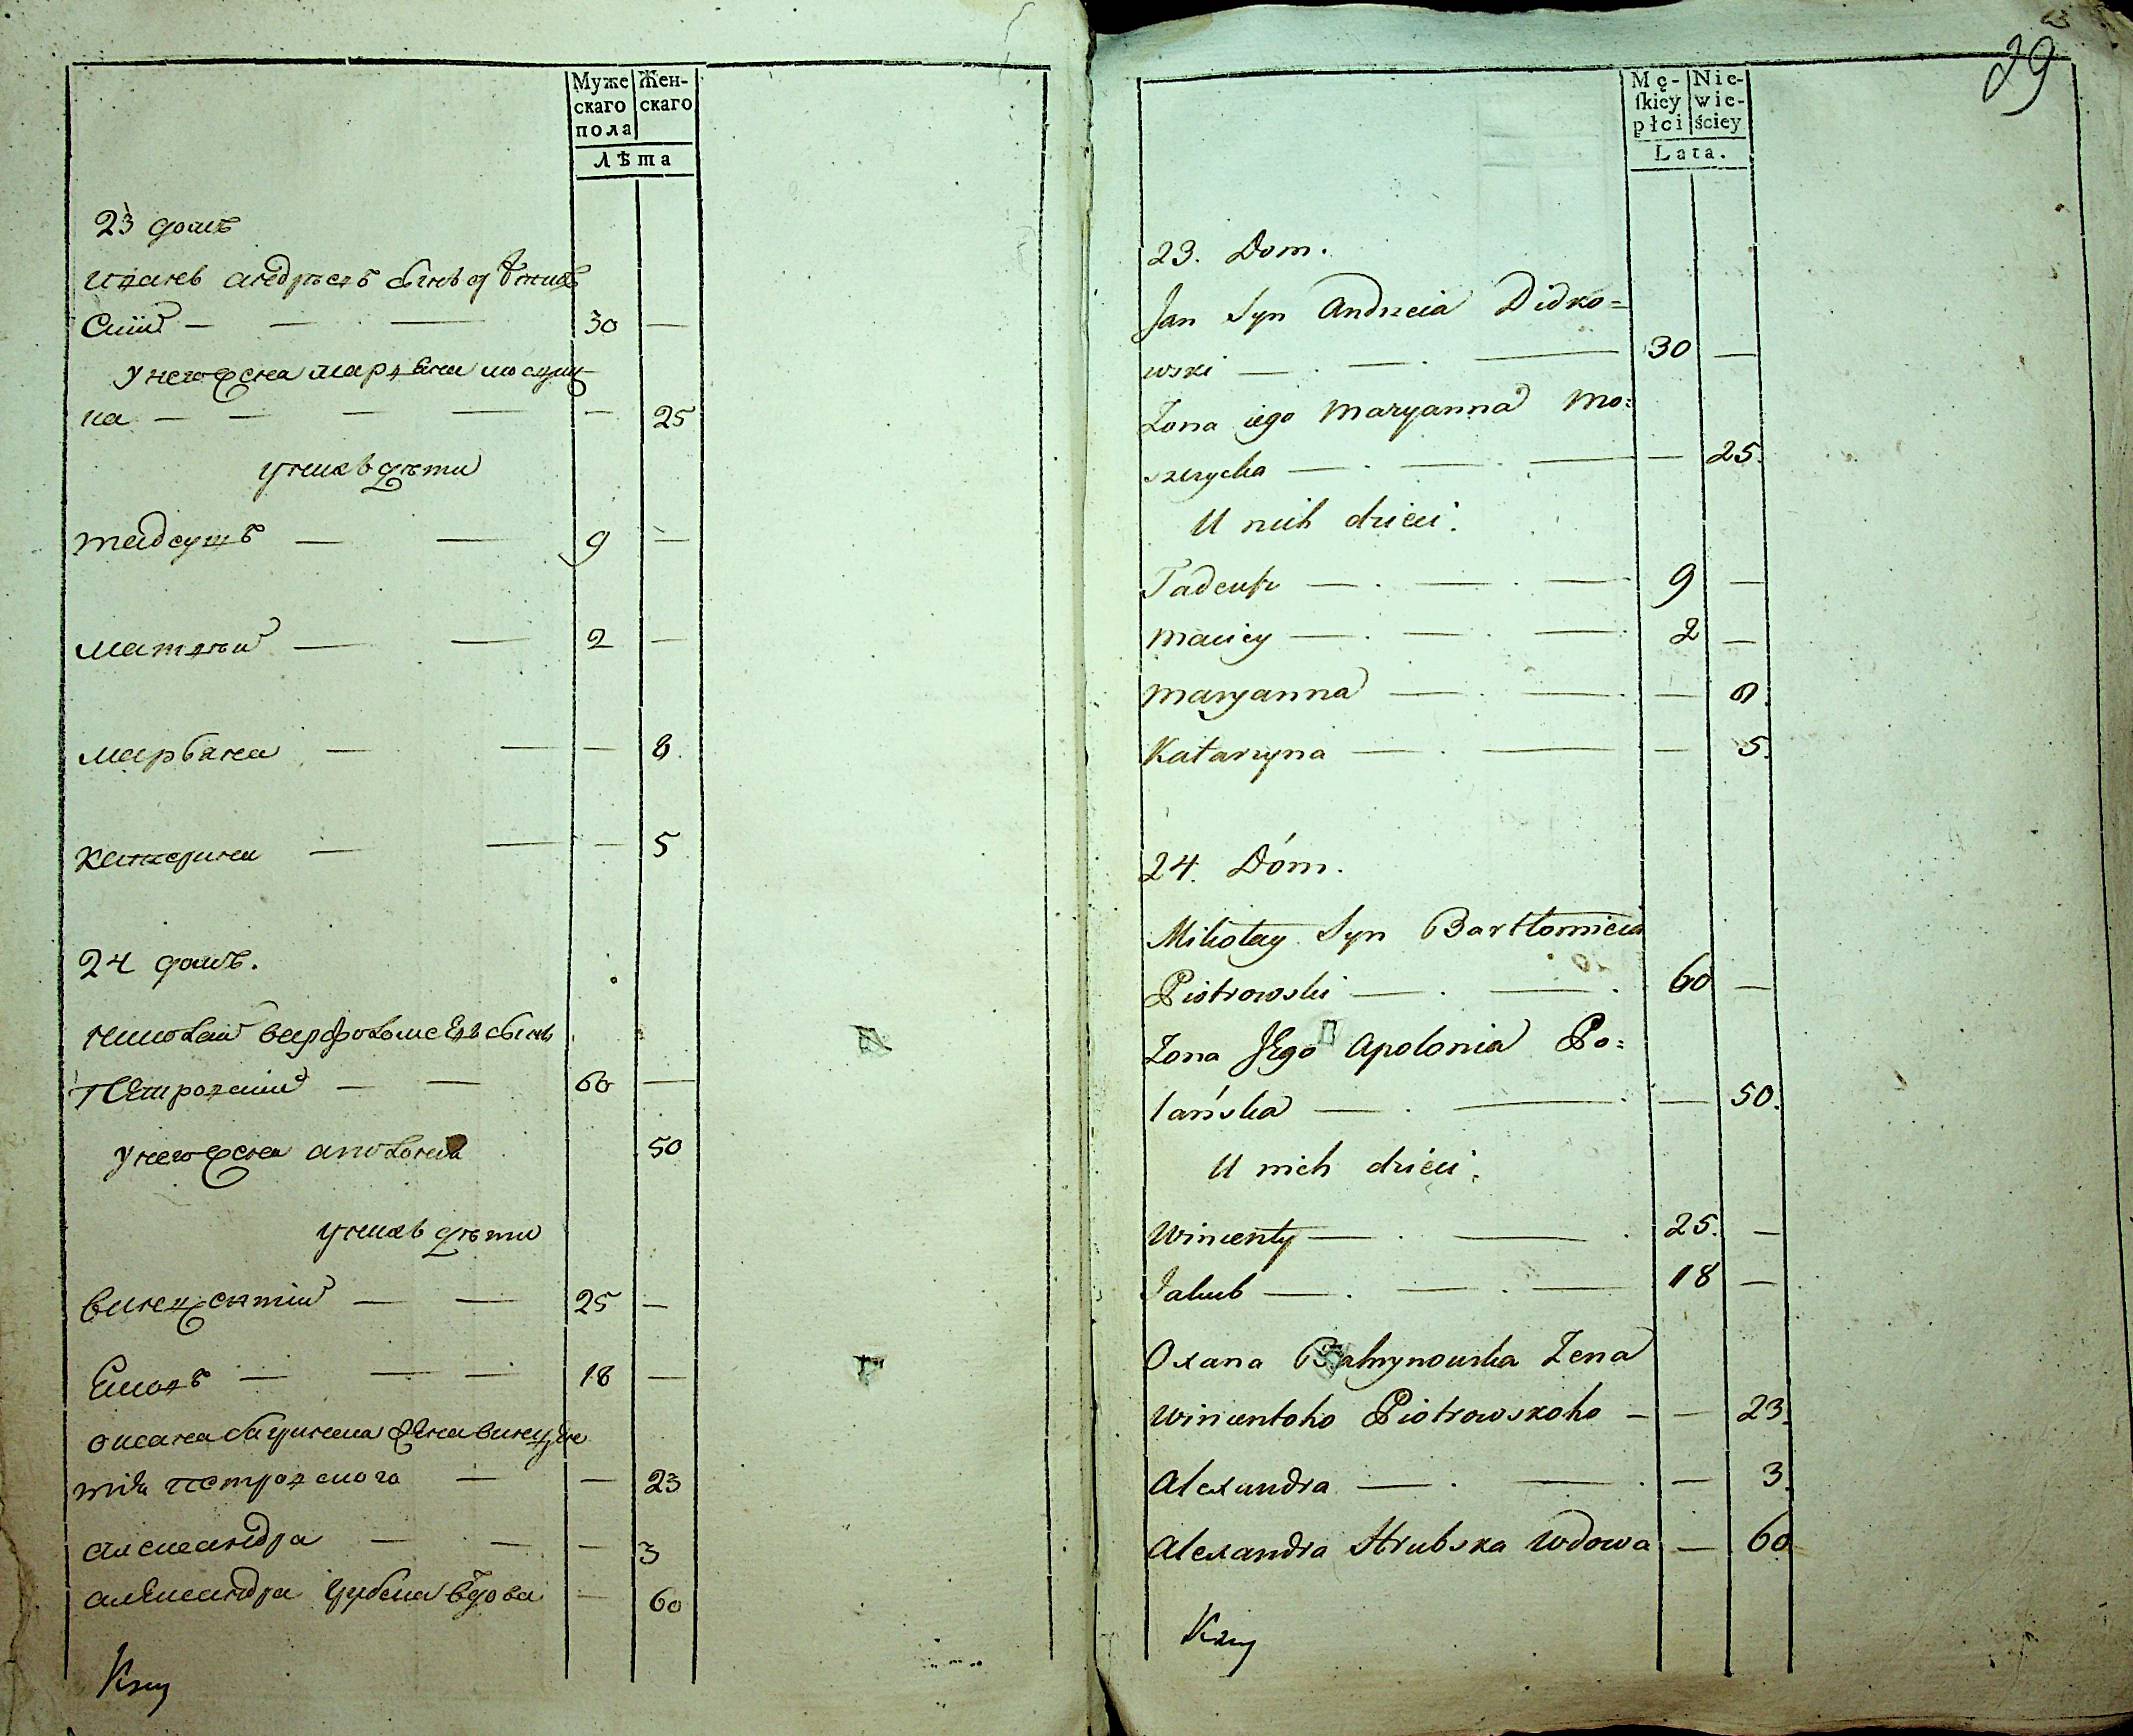 Муже
скаго
пола
Жен-
скаго
Лѣта
23 домъ
иванъ андрѣевъ сынъ дѣтков
скій — — — 30 —
у него жена марьяна
ка — — — — — 25
у нихъ дѣти
тадеушъ — — 9 —
матвѣй — — 2 —
марьяна — — — 8
катерина — — — 5
24 домъ.
николай варфоломеевъ сынъ
Петровский — — 60 —
у него жена аполония 50
у нихъ дѣти
винцентий — — 25 —
Яковъ — — — 18 —
оксана жена винцен
тія петровского — — 23
александра — — — 3
александра вдова — 60
29
Mę-
skiey
płci
Nie-
wie-
ściey
Lata.
23. Dom.
Jan Syn Andrzeia Didko=
wski — . — . — 30 —
Zona iego Maryanna Mo=
szczycka — . — . — — 25.
U nich dzieci.
Tadeusz — . — . — 9 —
Maciey — . — . — 2 —
Maryanna — . — . — 8.
Katarzyna — . — — 5.
24. Dóm.
Mikołay Syn Bartłomieia
Piotrowski — . — . 60 —
Zona JEgo Apolonia Po=
lańska — . — . — 50.
U nich dzieci.
Wincenty — . — . 25. —
Jakub — . — . — 18 —
Oxana Zena
Wincentoho Piotrowskoho — — 23.
Alexandra — . — . — 3.
Alexandra Hrubska Wdowa — 60